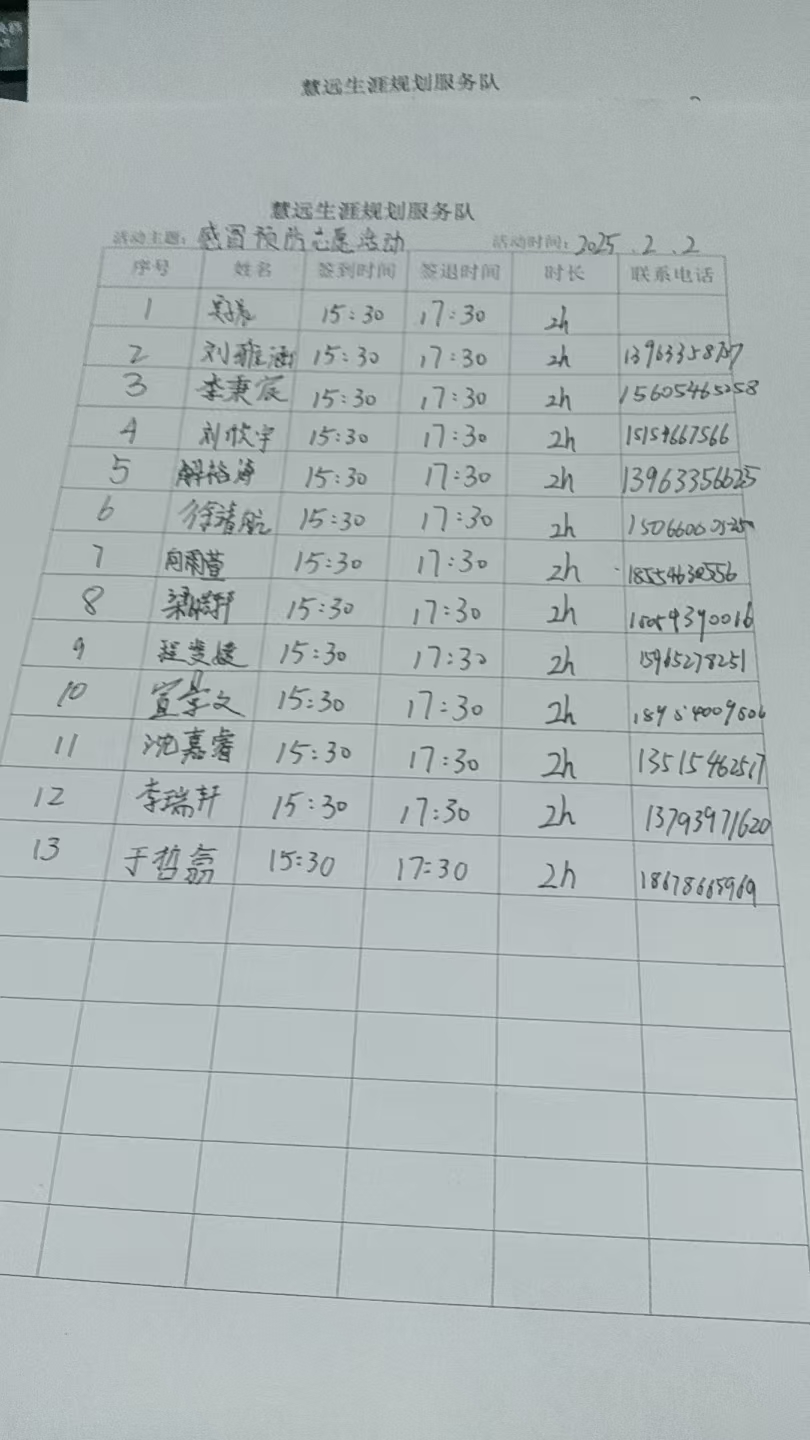 慧远生涯规划服务队
慧远生涯规划服务队
活动主题：感冒预防志愿活动 活动时间：2025.2.2
序号 姓名 签到时间 签退时间 时长 联系电话
1 15:30 17:30 2h
2 刘雅涵 15:30 17:30 2h
3 李秉宸 15:30 17:30 2h 15605465258
4 15:30 17:30 2h 15154667566
5 15:30 17:30 2h 13963356625
6 徐靖航 15:30 17:30 2h
7 向雨萱 15:30 17:30 2h 18554630556
8 15:30 17:30 2h
9 15:30 17:30 2h 15965278251
10 宣景文 15:30 17:30 2h
11 沈嘉睿 15:30 17:30 2h 13515462517
12 李瑞轩 15:30 17:30 2h 13793971620
13 于哲磊 15:30 17:30 2h 18678665969